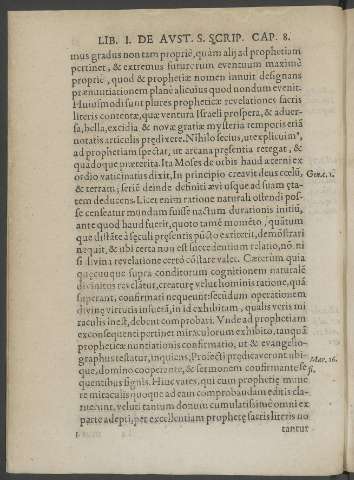 LIB. I. DE AVST. S. SCRIP. CAP. 8.
mus gradus non tam propriè, quàm alij ad prophetiam
pertinet, & extremus futurorum euentuum maximè
propriè, quod & prophetiæ nomen innuit designans
prænuntiationem planè alicuius quod nondum euenit.
Huiusmodi sunt plures propheticæ reuelationes sacris
literis contentæ, quæ ventura Israeli prospera, & aduer-
sa, bella, excidia & nouæ gratiæ mysteria temporis etiã
notatis articulis prædixere. Nihilo secius, vt explicuimꝰ,
ad prophetiam spectat, vt arcana præsentia retegat, &
quãdoque præterita. Ita Moses de orbis haud æterni ex
ordio vaticinatus dixit, In principio creauit deus cœlũ, Gene. 1.
& terram; seriẽ deinde definiti æui vsque ad suam ęta-
tem deducens. Licet enim ratione naturali ostendi pos-
se censeatur mundum fuisse nactum durationis initiũ,
ante quod haud fuerit, quoto tamẽ momẽto, quátum
que distãte à sęculi pręsentis pũcto extiterit, demõstrari
nequit, & vbi certa non est succedentium relatio, nõ, ni
si diuina reuelatione certò cõstare valet. Cæterùm quia
quęcunque supra conditorum cognitionem naturalẽ
diuinitus reuelatur, creaturę velut hominis ratione, quã
superant, confirmari nequeunt: secũdum operationem
diuinę virtutis insuetã, in id exhibitam, qualis veris mi
raculis inest, debent comprobari. Vnde ad prophetiam
ex consequenti pertinet miraculorum exhibitio, tanquã
propheticæ nuntiationis confirmatio, vt & euangelio-
graphus testatur, inquiens, Profecti prædicauerunt vbi-
que, domino cooperante, & sermonem confirmante se Mar. 16.
quentibus signis. Hinc vates, qui cum prophetię mune fi.
re miraculis quoque ad eam comprobandam editis cla-
ruerunt, veluti tantum donum cumulatissimè omni ex
parte adepti, per excellentiam prophetę sacris literis no
tantur